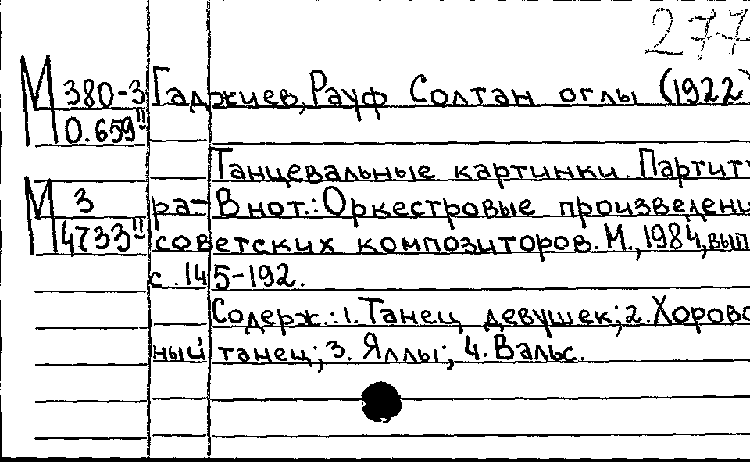 277
М 380-3 Гаджиев, Рауф Солтан оглы (1922)
0.659 II
Танцевальные картинки. Партит
М 3 ра- В нот.: Оркестровые произведени
4733 II советских композиторов. М., 1984, вып
с. 145-192.
Содерж.: 1. Танец девушек; 2. Хорово
ный танец; 3. Яллы; 4. Вальс.